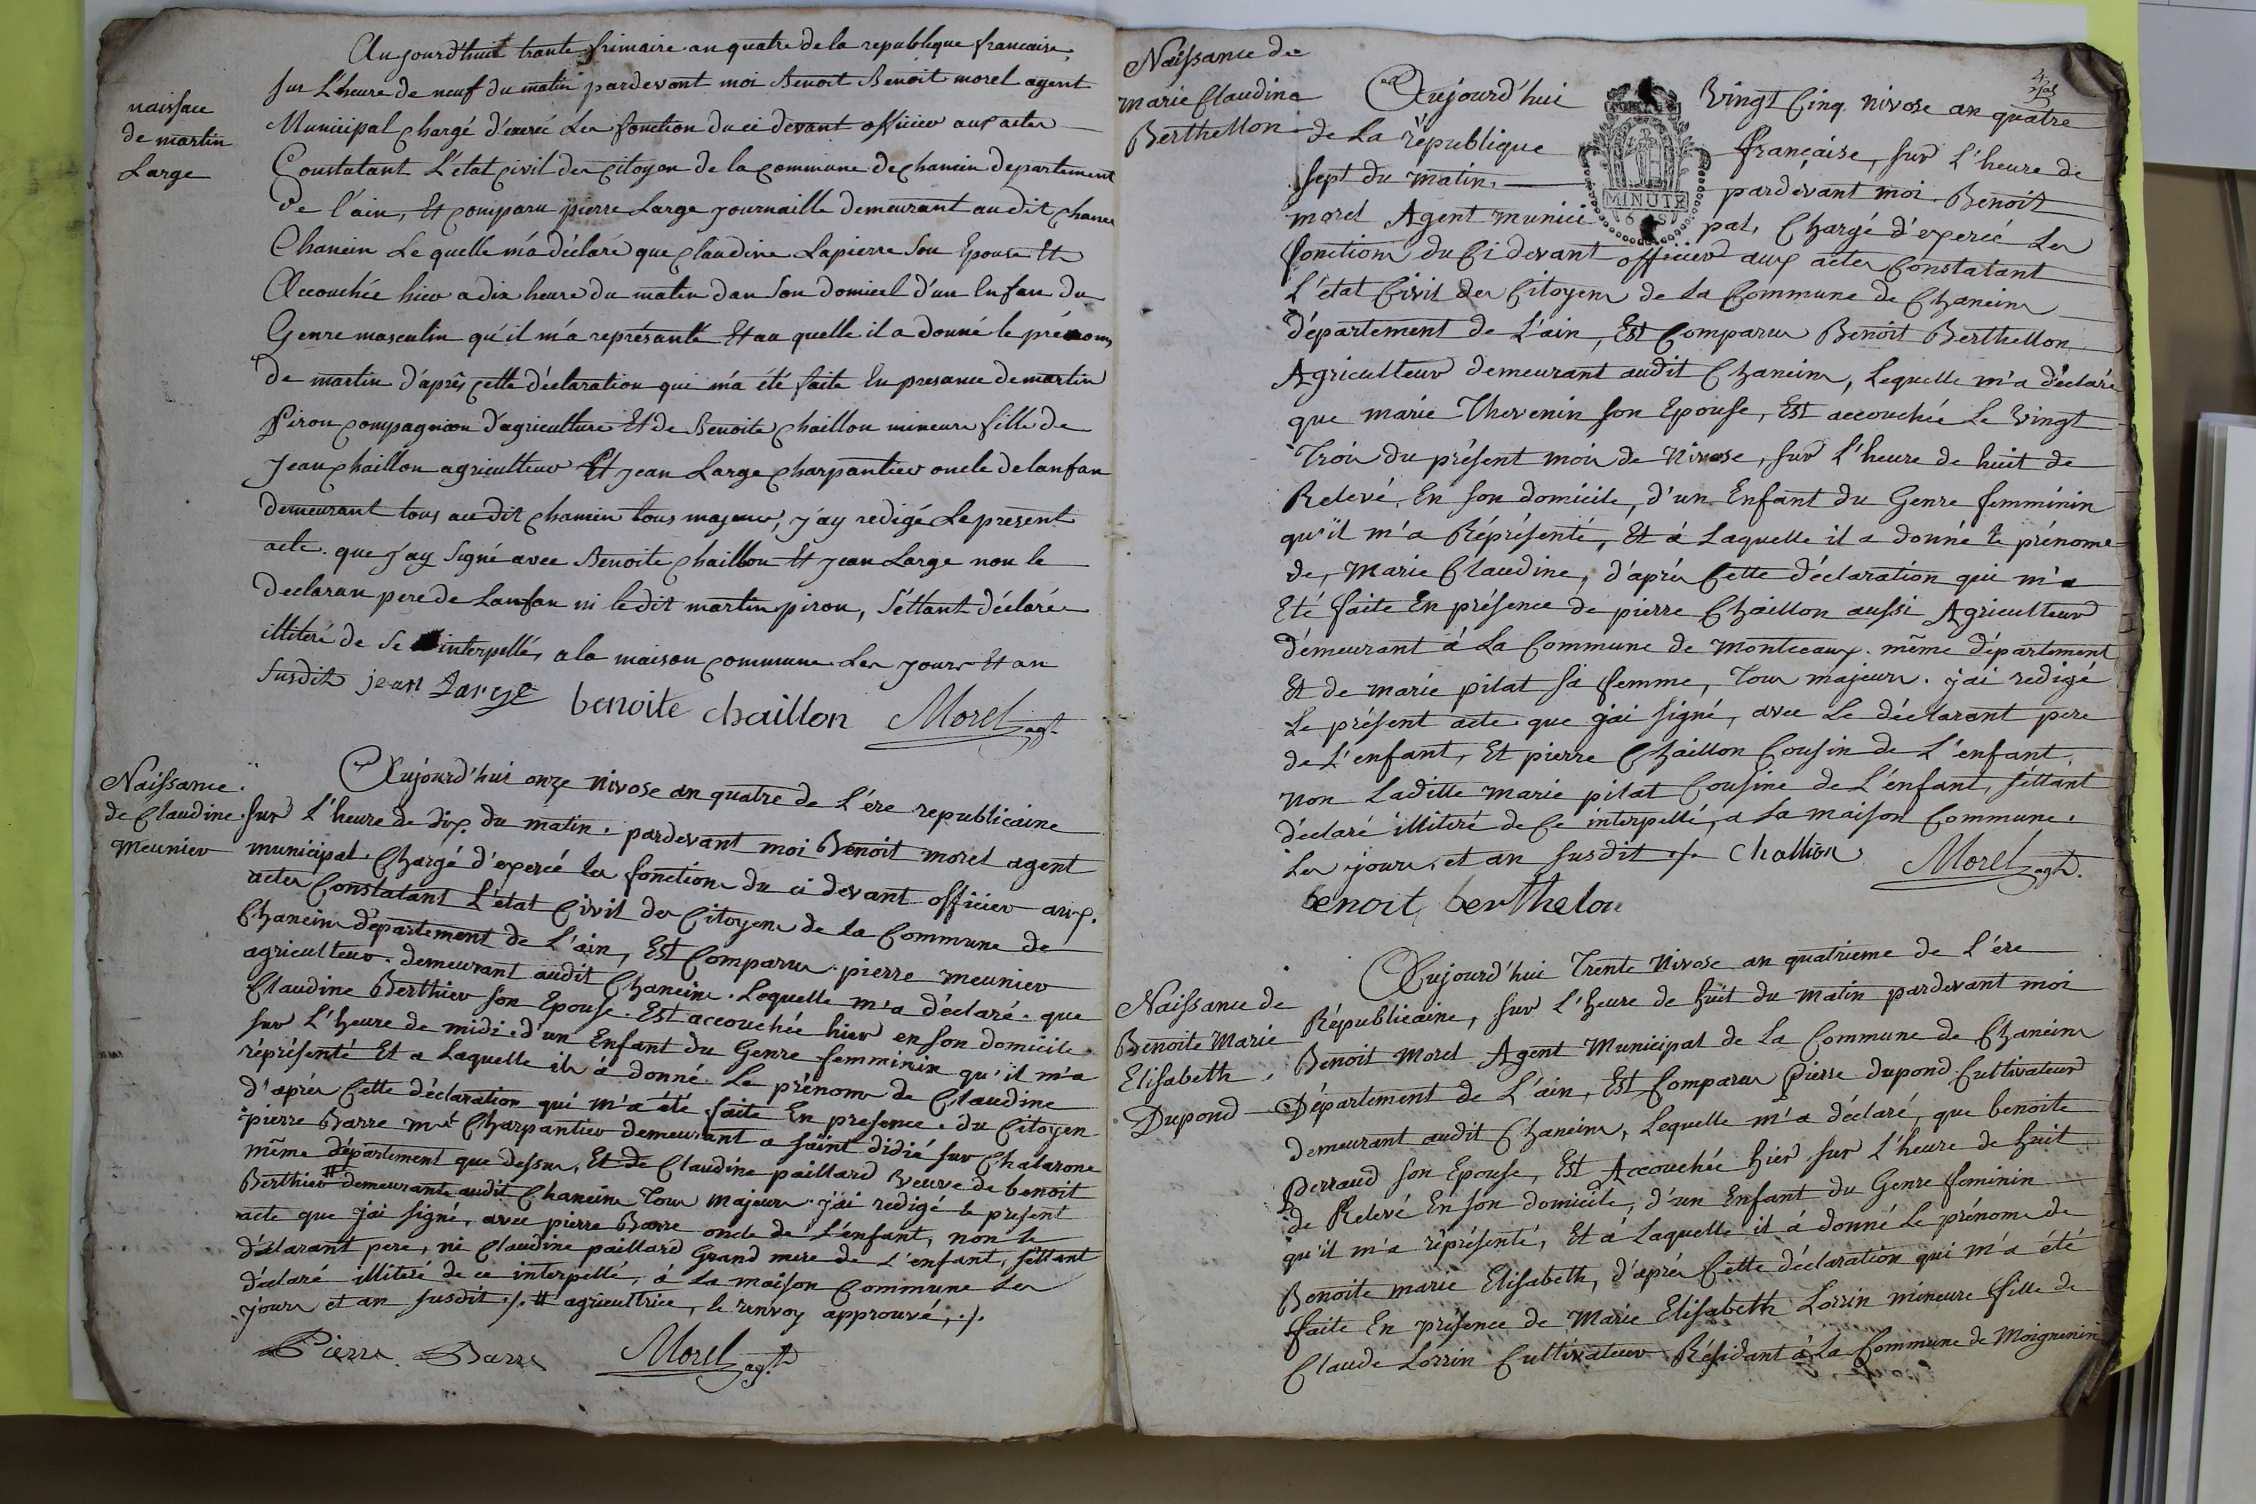 Aujourd'huit trante frimaire an quatre de la republique francaise
sur L'heure de neuf du matin pardevant moi Benoit Benoit morel agent
Municipal chargé d'exercé Les fonction du ci devant officier aux actes
Constatant L'état civil des citoyen de la commune de chanein departement
De l'ain, Et comparu pierre Large journaille demeurant au dit chanei
Chanein Le quelle m'a déclaré que claudine Lapierre son Epouse Et
Accouchée hier a dix heure du matin dan son domicel d'un Enfan du
Genre masculin qu'il m'a représanté Et au quelle il a donné le prénom
De martin d'après cette déclaration qui m'a été faite En presance de martin
Pirou compagnion d'agriculture Et de Benoite chaillon mineure fille de
Jean chaillon agriculteur Et jean Large charpantier oncle de lanfan
demeurant tous au dit chanein tous majeur, j'ay redigé Le present
acte que j'ay signé avec Benoite chaillon Et jean Large non le
declaran pere de Lanfan ni le dit martin pirou, s'ettant déclarés
illiteré de se interpellé, a la maison commune Les jours Et an
Susdits jean Large benoite chaillon Morel agt
naissace
de martin
Large
Naissance
de Claudine
Meunier
Aujourd'hui onze nivose an quatre de L'ére republicaine
sur L'heure de dix du matin pardevant moi Benoit morel agent
municipal Chargé d'exercé les fonctions du ci devant officier aux
actes Constatant L'état Civil des Citoyens de la Commune de
Chaneins département de L'ain, Est Comparus pierre meunier
agriculteur demeurant audit Chaneins Lequelle m'a déclaré que
Claudine Berthier son Epouse Est accouchée hier en son domicile
sur L'heure de midi d'un Enfant du Genre femminin qu'il m'a
réprésenté Et a Laquelle ila á donné Le prénom de Claudine
D'aprés Cette déclaration qui m'a été faite En presence du Citoyen
pierre Barre mtre Charpantier demeurant a saint didié sur Chalarone
même département que dessus, Et de Claudine paillard veuve de benoit
Berthier # demeurante audit Chaneins Tous majeurs j'ai redigé le present
acte que j'ai signé, avec pierre Barre oncle de L'enfant, non le
déclarant pere, ni Claudine paillard Grand mere de L'enfant, s'éttant
déclaré illiteré de ce interpéllé, á La maison Commune Les
jours et an susdit ./. # agricultrice, le renvoy approuvé, ./.
Pierre Barre Morel agt
4
Naissance de
Marie Claudine
Berthellon
Aujourd'hui Vingt Cinq nivose an quatre
de La république française, sur L'heure de
sept du matin pardevant moi Benoit
morel Agent munici pal, Chargé d'exercé Les
fonctions du Ci devant officier aux actes Constatant
L'état Civil des Citoyens de La Commune de Chaneins
département de L'ain, Est Comparus Benoit Berthellon
Agriculteur demeurant audit Chaneins, Lequelle m'a déclaré
que marie Thevenin son Epouse, Est accouchée Le Vingt
Trois du présent mois de Nivose, sur L'heure de huit de
Relevé En son domicile, d'un Enfant du Genre femminin
qu'il m'a Réprésenté, Et á Laquelle il a donné le prénome
de, Marie Claudine, d'aprés Cette déclaration qui m'a
Eté faite En présence de pierre Chaillon aussi Agriculteur
démeurant á La Commune de Montceaux même département
Et de marie pilat sa femme, Tous majeurs. j'ai redigé
Le présent acte que j'ai signé, avec Le déclarant pere
de L'enfant, Et pierre Chaillon Cousin de L'enfant,
non Laditte marie pilat Cousine de L'énfant, s'éttant
déclaré illiteré de Ce interpellé, a La maison Commune
Les jours et an susdit ./. Challion Morel agt.
benoit berthelon
MINUTE
Naissance de
Benoite Marie
Elisabeth
Dupond
Aujourd'hui Trente Nivose an quatrieme de L'ére
Républicaine, sur L'heure de huit du matin pardevant moi
Benoit Morel Agent Municipal de La Commune de Chaneins
Département de L'ain, Est Comparus Pierre dupond Cultivateur
demeurant audit Chaneins, Lequelle m'a déclaré, que benoite
perraud son Epouse, Est Accouchée hier sur L'heure de huit
de Relevé En son domicile, d'un Enfant du Genre feminin
qu'il m'a réprésenté, Et á Laquelle il á donné Le prénome de
Benoite marie Elisabeth, d'aprés Cette déclaration qui m'a été
faite En présence de Marie Elisabeth Lorrin mineure fille de
Claude Lorrin Cultivateur Résidant á La Commune de Moigneneins